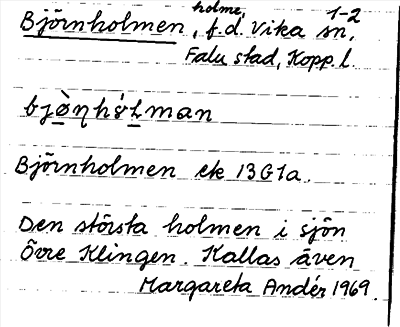 holme, 1-2
Björnholmen, f.d. Vika sn,
Falu stad, Kopp. l.
Björnholmen ek 13G1a.
Den största holmen i sjön
Övre Klingen. Kallas även
Margareta Andér 1969.